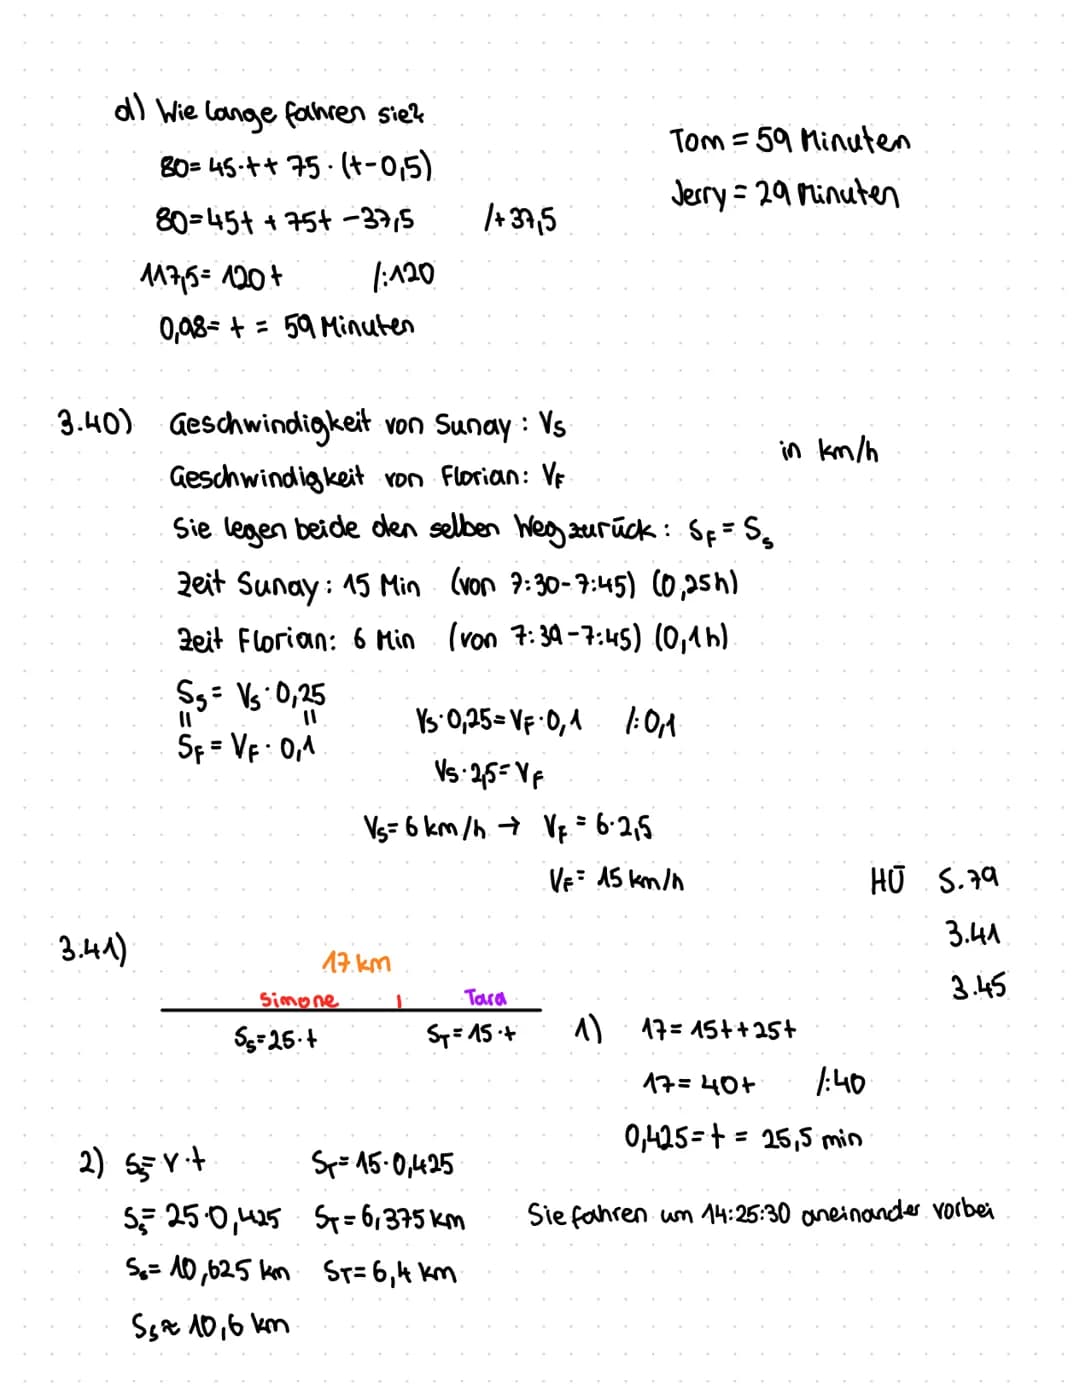 d) Wie lange fahren sie?
80=45·t+75·(t-0,5)
80=45t+75t-37,5 /+37,5
117,5=120t /:120
0,98=t=59 Minuten
Tom=59 Minuten
Jerry=29 Minuten
3.40) Geschwindigkeit von Sunay: Vs
Geschwindigkeit von Florian: VF
in km/h
Sie legen beide den selben Weg zurück: SF=Ss
Zeit Sunay: 15 Min (von 7:30-7:45) (0,25h)
Zeit Florian: 6 Min (von 7:39-7:45) (0,1h)
Ss=Vs·0,25
|| ||
SF=VF·0,1
Vs·0,25=VF·0,1 /:0,1
Vs·2,5=VF
Vs=6 km/h → VF=6·2,5
VF=15 km/h
HÜ S.79
3.41
3.45
3.41)
17 km
Simone | Tara
Ss=25·t ST=15·t
1) 17=15t+25t
17=40t /:40
0,425=t=25,5 min
Sie fahren um 14:25:30 aneinander vorbei
2) Ss=v·t ST=15·0,425
Ss=25·0,425 ST=6,375 km
Ss=10,625 km ST=6,4 km
Ss≈10,6 km